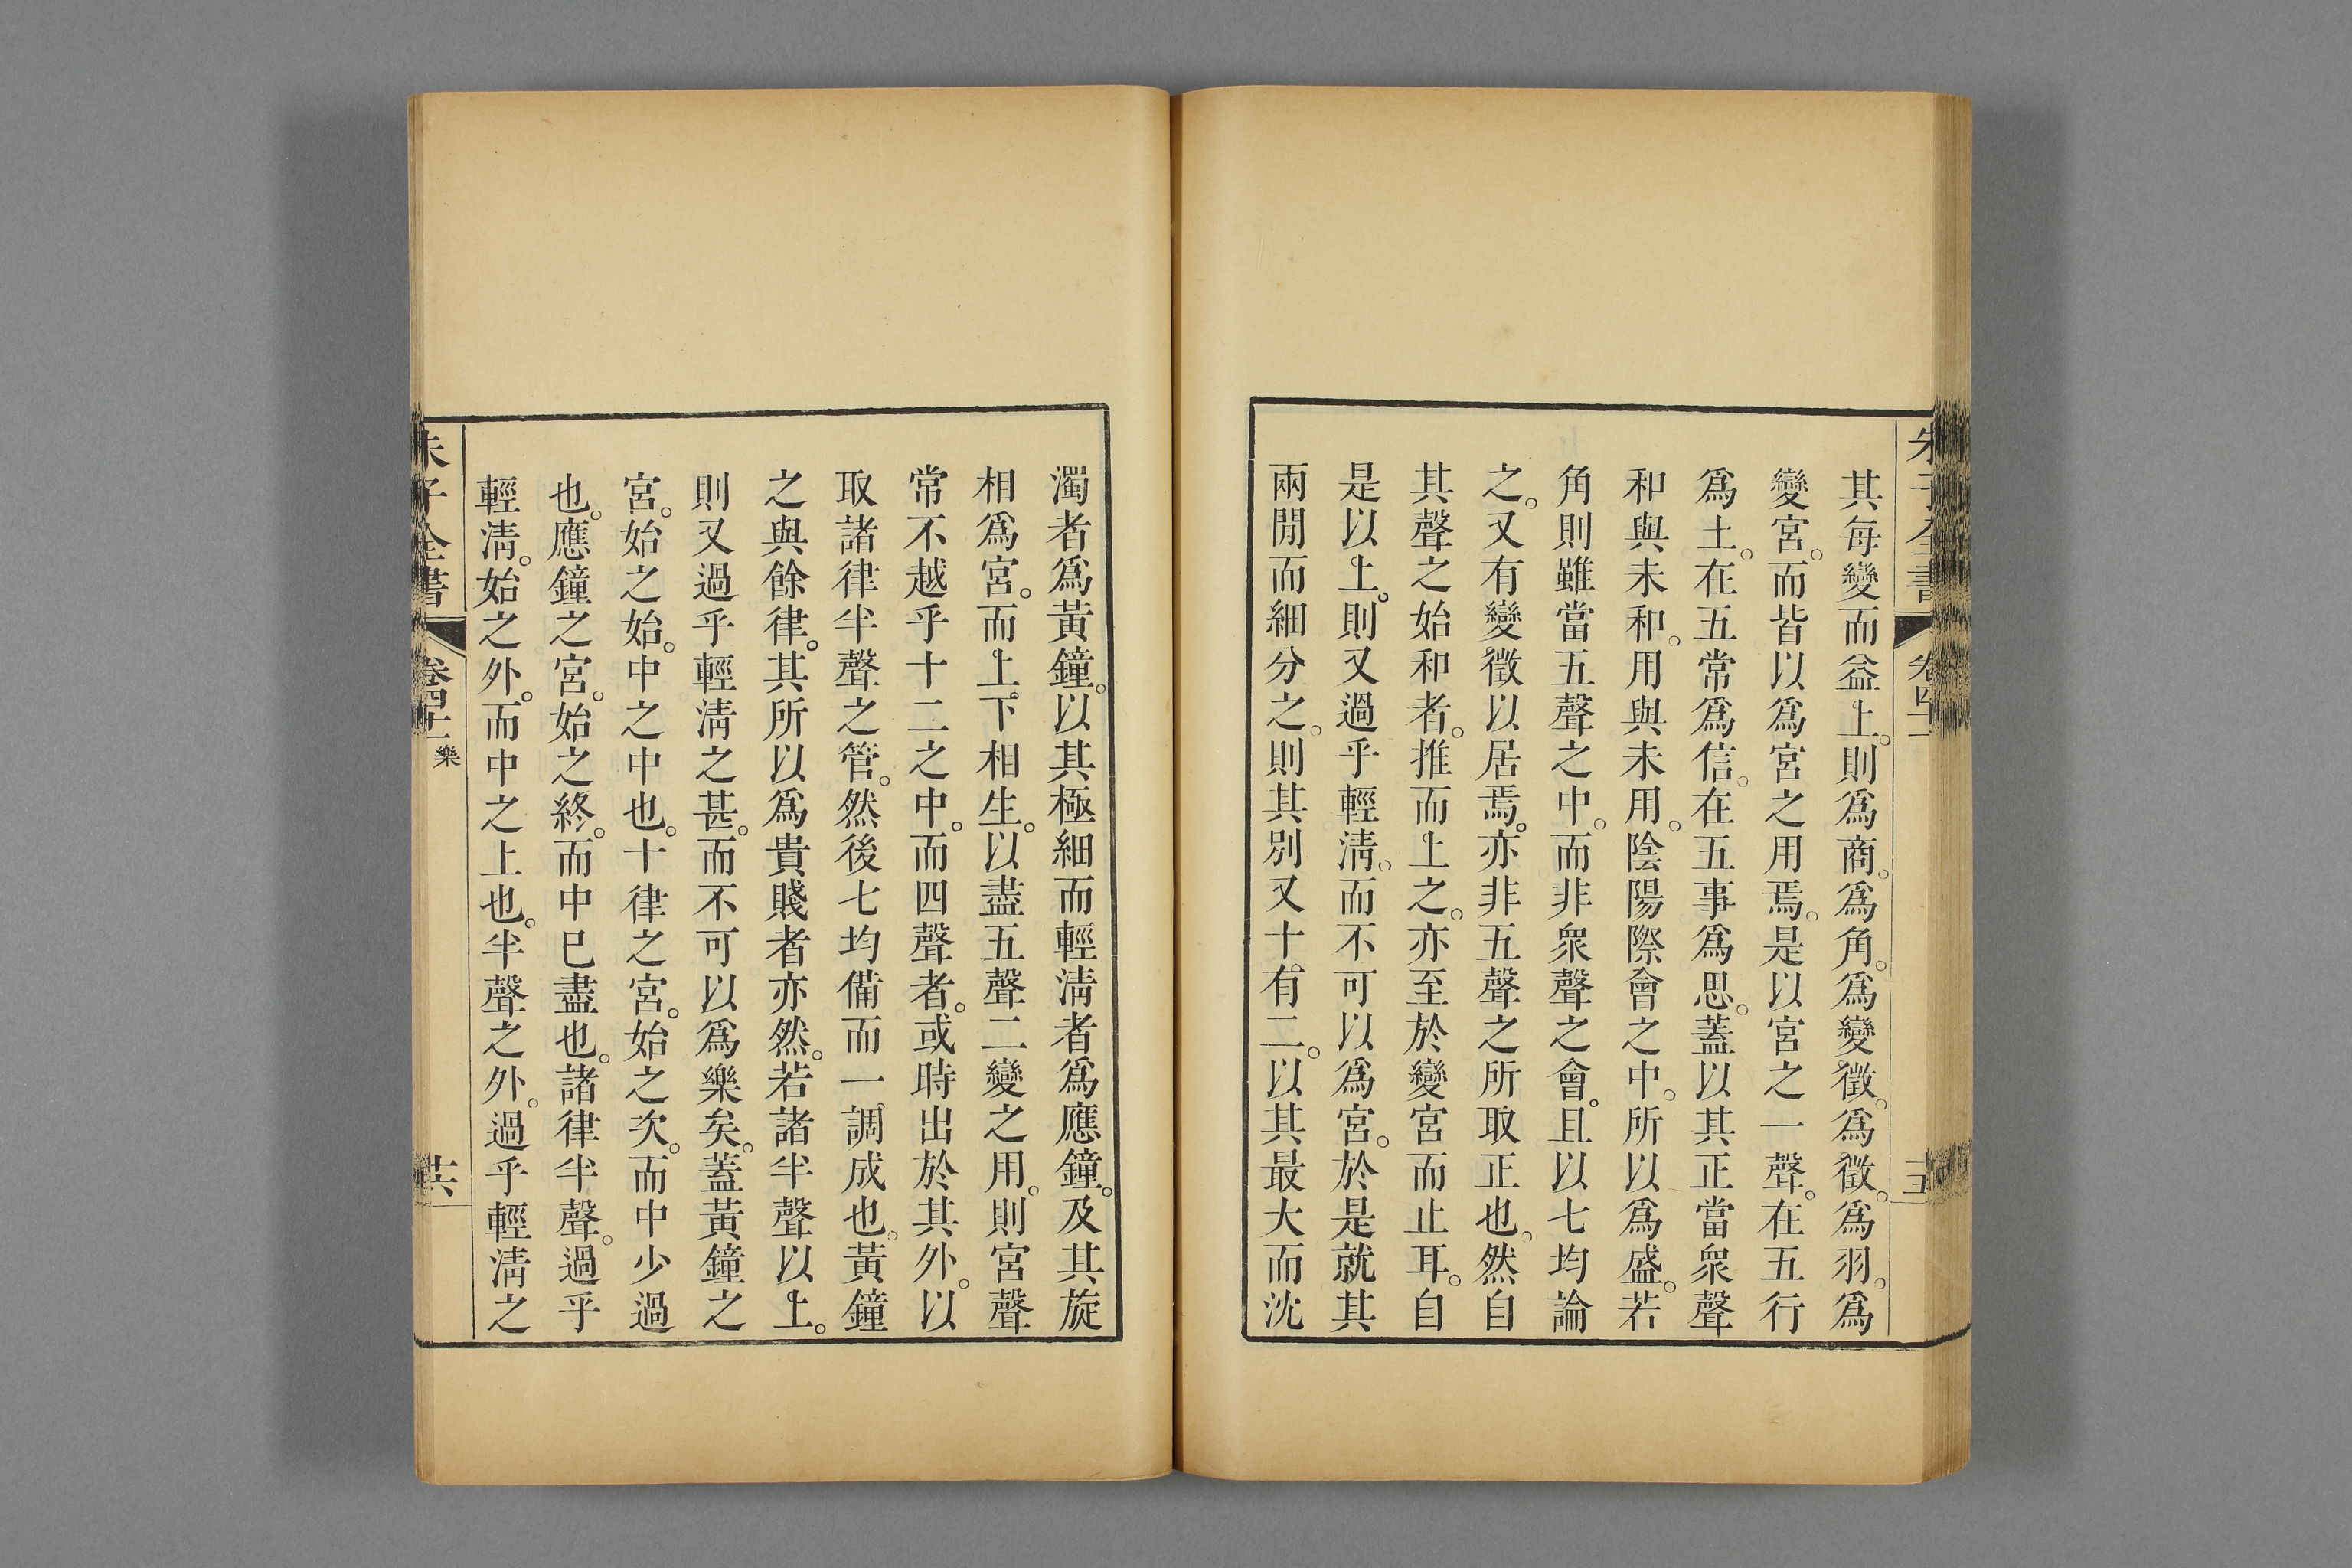 其每變而益上。則爲商。爲角。爲變徵。爲徵。爲羽。爲
變宮。而皆以爲宮之用焉。是以宮之一聲。在五行
爲土。在五常爲信。在五事爲思。蓋以其正當衆聲
和與未和。用與未用。陰陽際會之中。所以爲盛。若
角則雖當五聲之中。而非衆聲之會。且以七均論
之。又有變徵以居焉。亦非五聲之所取正也。然自
其聲之始和者。推而上之。亦至於變宮而止耳。自
是以上。則又過乎輕淸。而不可以爲宮。於是就其
兩閒而細分之。則其別又十有二。以其最大而沈
濁者爲黃鐘。以其極細而輕淸者爲應鐘。及其旋
相爲宮。而上下相生。以盡五聲二變之用。則宮聲
常不越乎十二之中。而四聲者。或時出於其外。以
取諸律半聲之管。然後七均備而一調成也。黃鐘
之與餘律。其所以爲貴賤者亦然。若諸半聲以上。
則又過乎輕淸之甚。而不可以爲樂矣。蓋黃鐘之
宮。始之始。中之中也。十律之宮。始之次。而中少過
也。應鐘之宮。始之終。而中已盡也。諸律半聲。過乎
輕淸。始之外。而中之上也。半聲之外。過乎輕淸之
朱子全書
卷四十一
樂